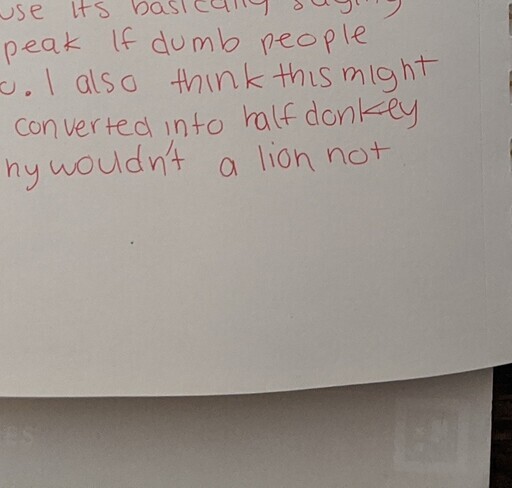 use its basically saying
peak If dumb people
o. I also think this might
converted into half donkey
hy wouldn't a lion not
ES